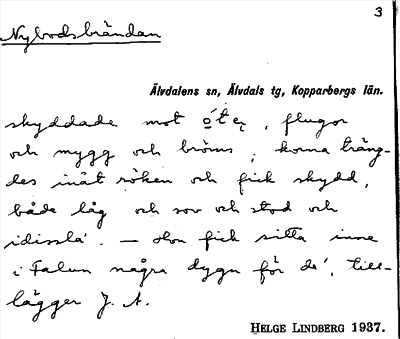 3
Nybodsbrändan
Älvdalens sn, Älvdals tg, Kopparbergs län.
skyddade mot , flugor
och mygg och bröms; korna träng-
des inåt röken och fick skydd,
både låg och sov och stod och
idissla'. — Hon fick sitta inne
i Falun några dygn för de', till-
lägger J. A.
HELGE LINDBERG 1937.